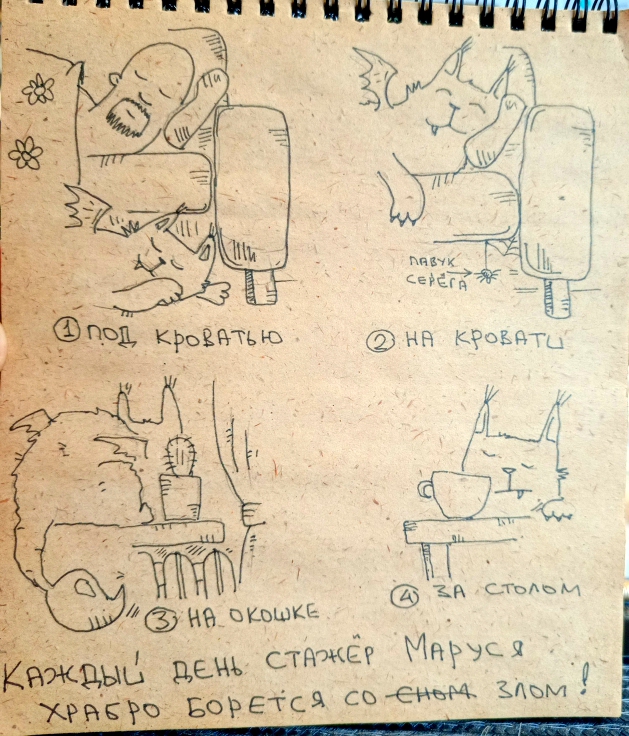 ПАУК
СЕРЁГА
① ПОД КРОВАТЬЮ
② НА КРОВАТИ
③ НА ОКОШКЕ
④ ЗА СТОЛОМ
КАЖДЫЙ ДЕНЬ СТАЖЁР МАРУСЯ
ХРАБРО БОРЕТСЯ СО СНОМ ЗЛОМ!